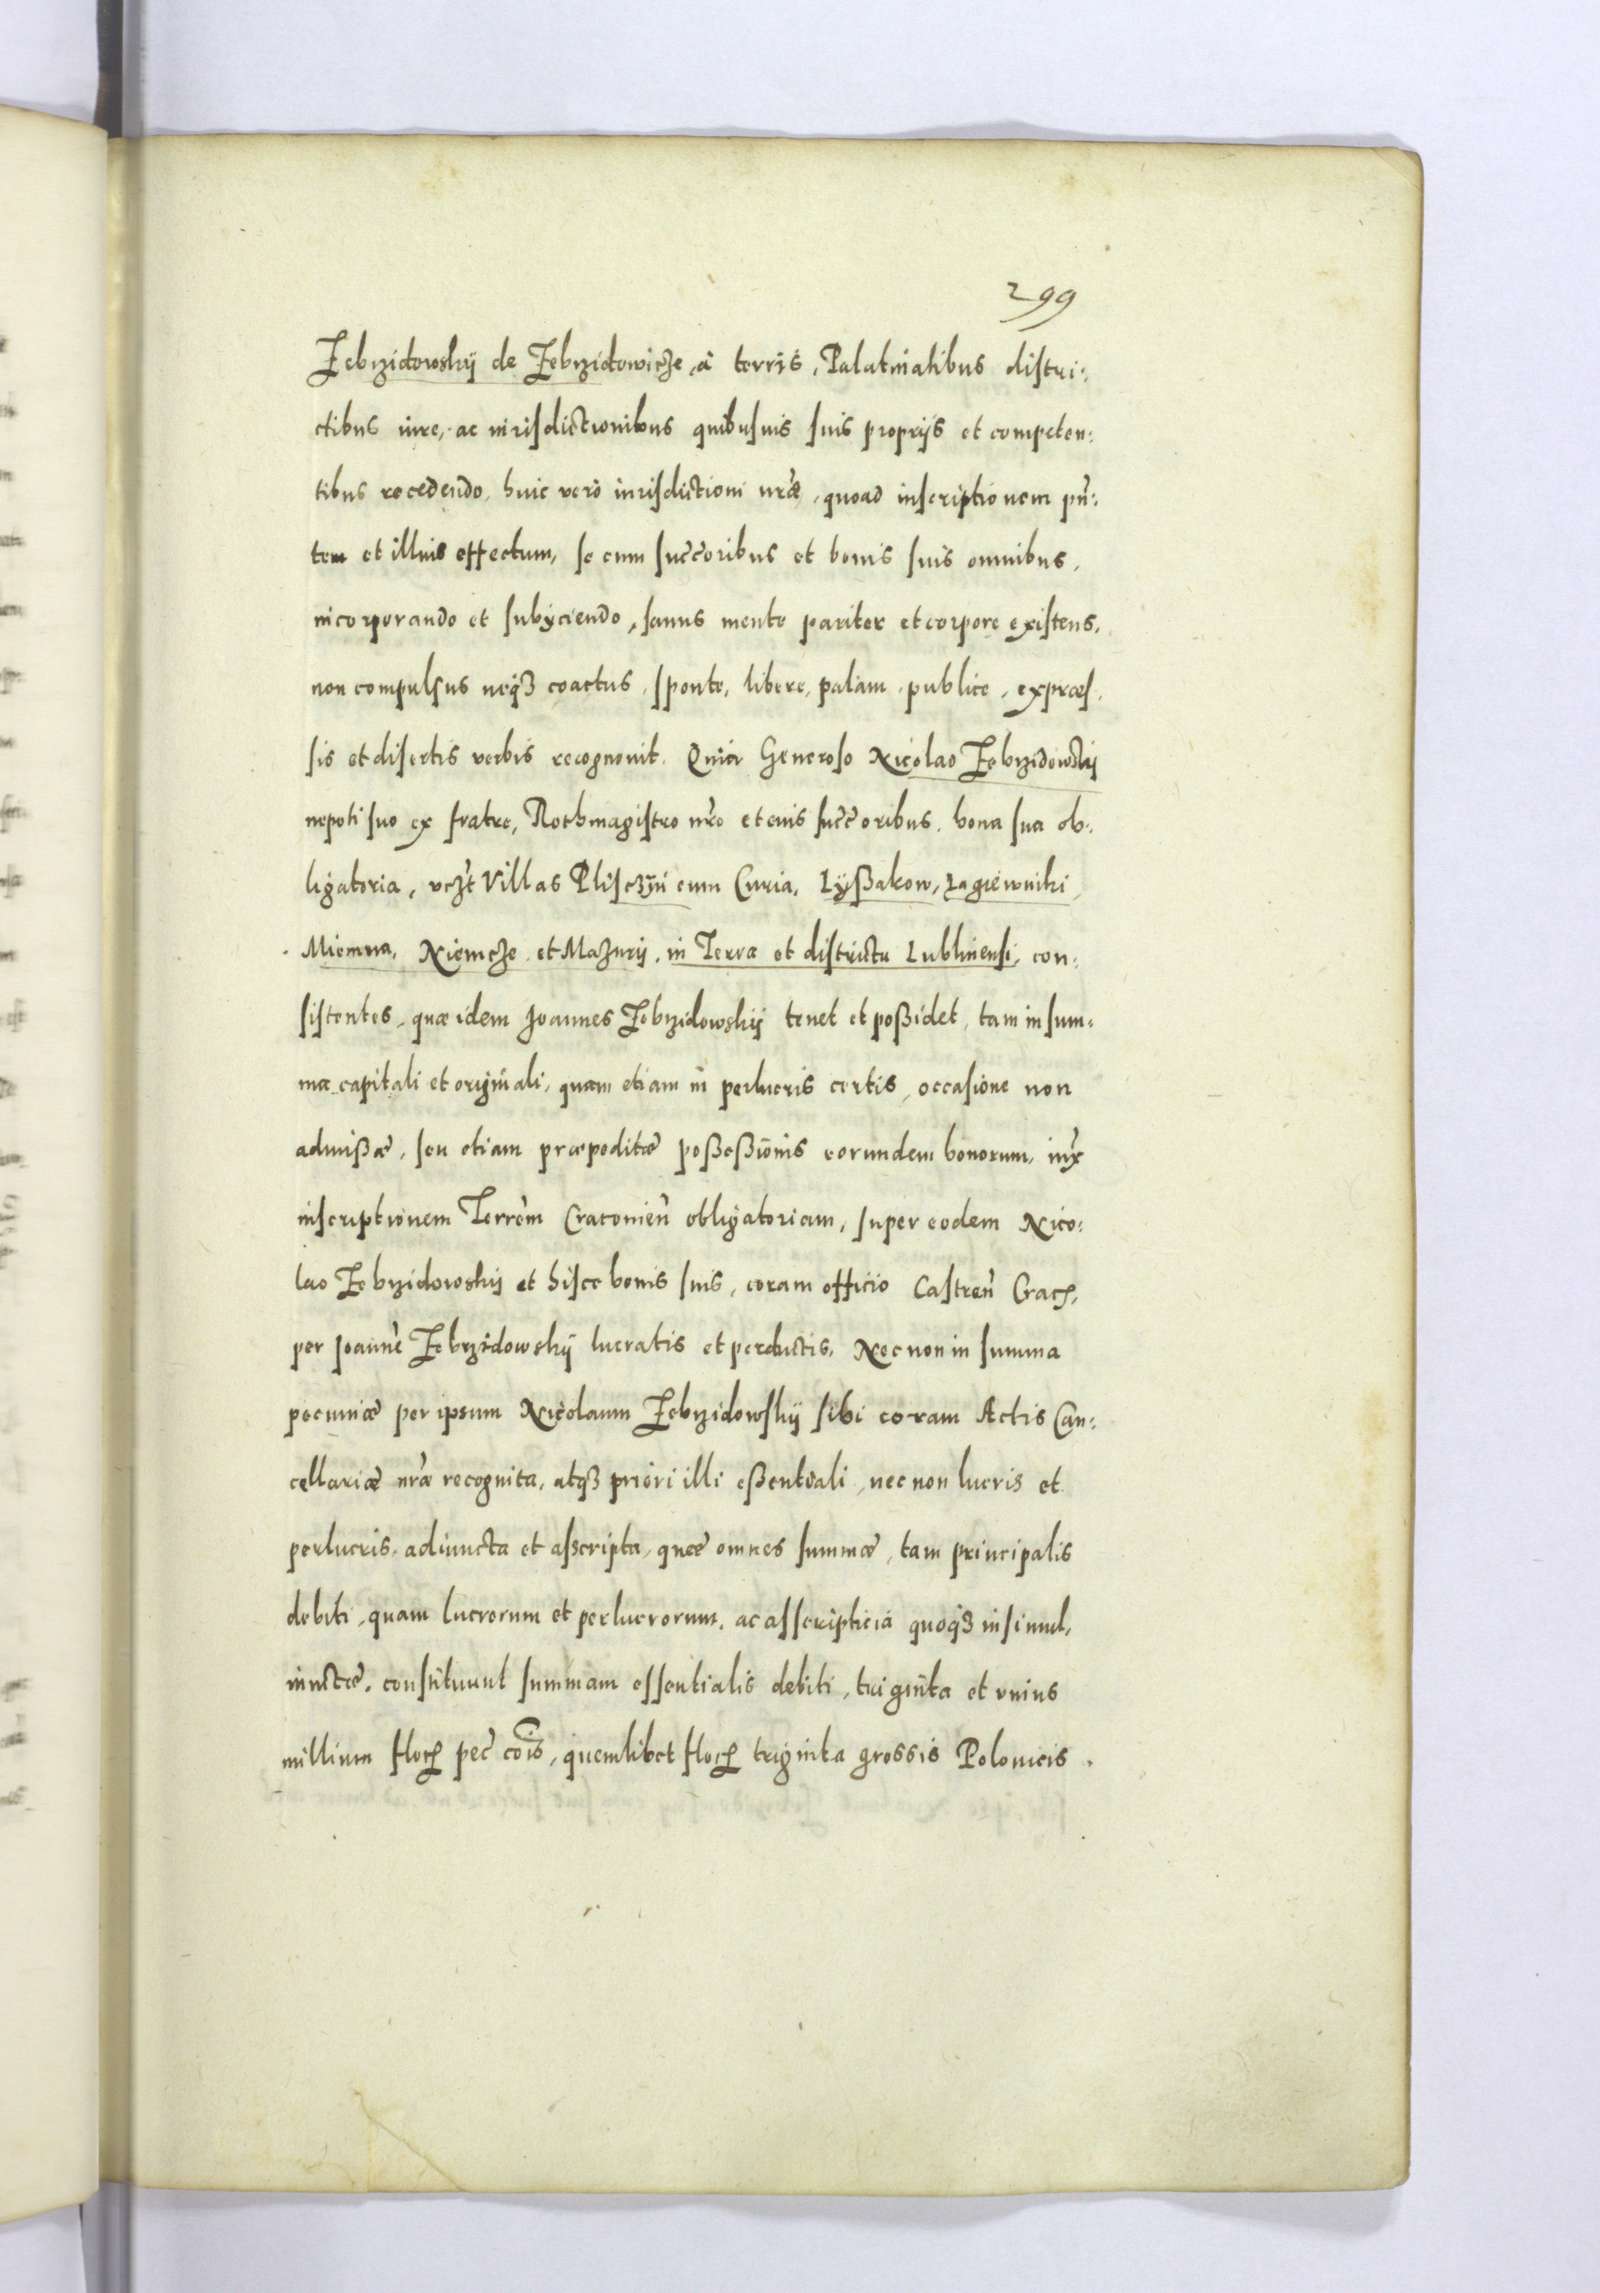 299
Zebrzidowskÿ de Zebrzidowicze, à terris, Palatinatibus distri:
ctibus iure, ac iurisdictionibus quibusuis suis proprijs et competen:
tibus recedendo, huic verò iurisdictioni nr̃æ, quoad inscriptionem pñ:
tem et illius effectum, se cum succ̃oribus et bonis suis omnibus,
incorporando et subijciendo, sanus mente pariter et corpore existens,
non compulsus neqꝫ coactus, sponte, libere, palàm, publice, expræs,
sis et disertis verbis recognouit. Quia Generoso Nicolao Zebrzidowskÿ
nepoti suo ex fratre, Rothmagistro nr̃o et euis succ̃oribus, bona sua ob:
ligatoria, vczt̃ Villas Plisczÿn cum Curia, Lÿßakow, Łagiewniki,
Miemna, Niemcze et Mazurÿ, in Terra et districtu Lublinensi, con:
sistentes, quæ idem Joannes Zebrzidowskÿ tenet et poßidet, tam in sum:
ma capitali et originali, quam etiam in perlucris certis, occasione non
admißæ, seu etiam præpeditæ poßeßionis eorundem bonorum, iux̃
inscriptionem Terrem̃ Cracouien̄ obligatoriam, super eodem Nico:
lao Zebrzidowskÿ et hisce bonis suis, coram officio Castren̄ Crac̃,
per Joannē Zebrzidowskÿ lucratis et perductis, Nec non in summa
pecuniæ per ipsum Nicolaum Zebrzidowskÿ sibi coram Actis Can:
cellariæ nr̃æ recognita, atqꝫ priori illi eßentiali, nec non lucris et
perlucris, adiuncta et asscripta, quæ omnes summæ, tam principalis
debiti, quam lucrorum et perlucrorum, ac asscripticia quoqꝫ insimul,
iunctæ, constituunt summam essentialis debiti, triginta et vnius
millium flor̃ pec̃ cõis, quemlibet flor̃ triginta grossis Polonicis.